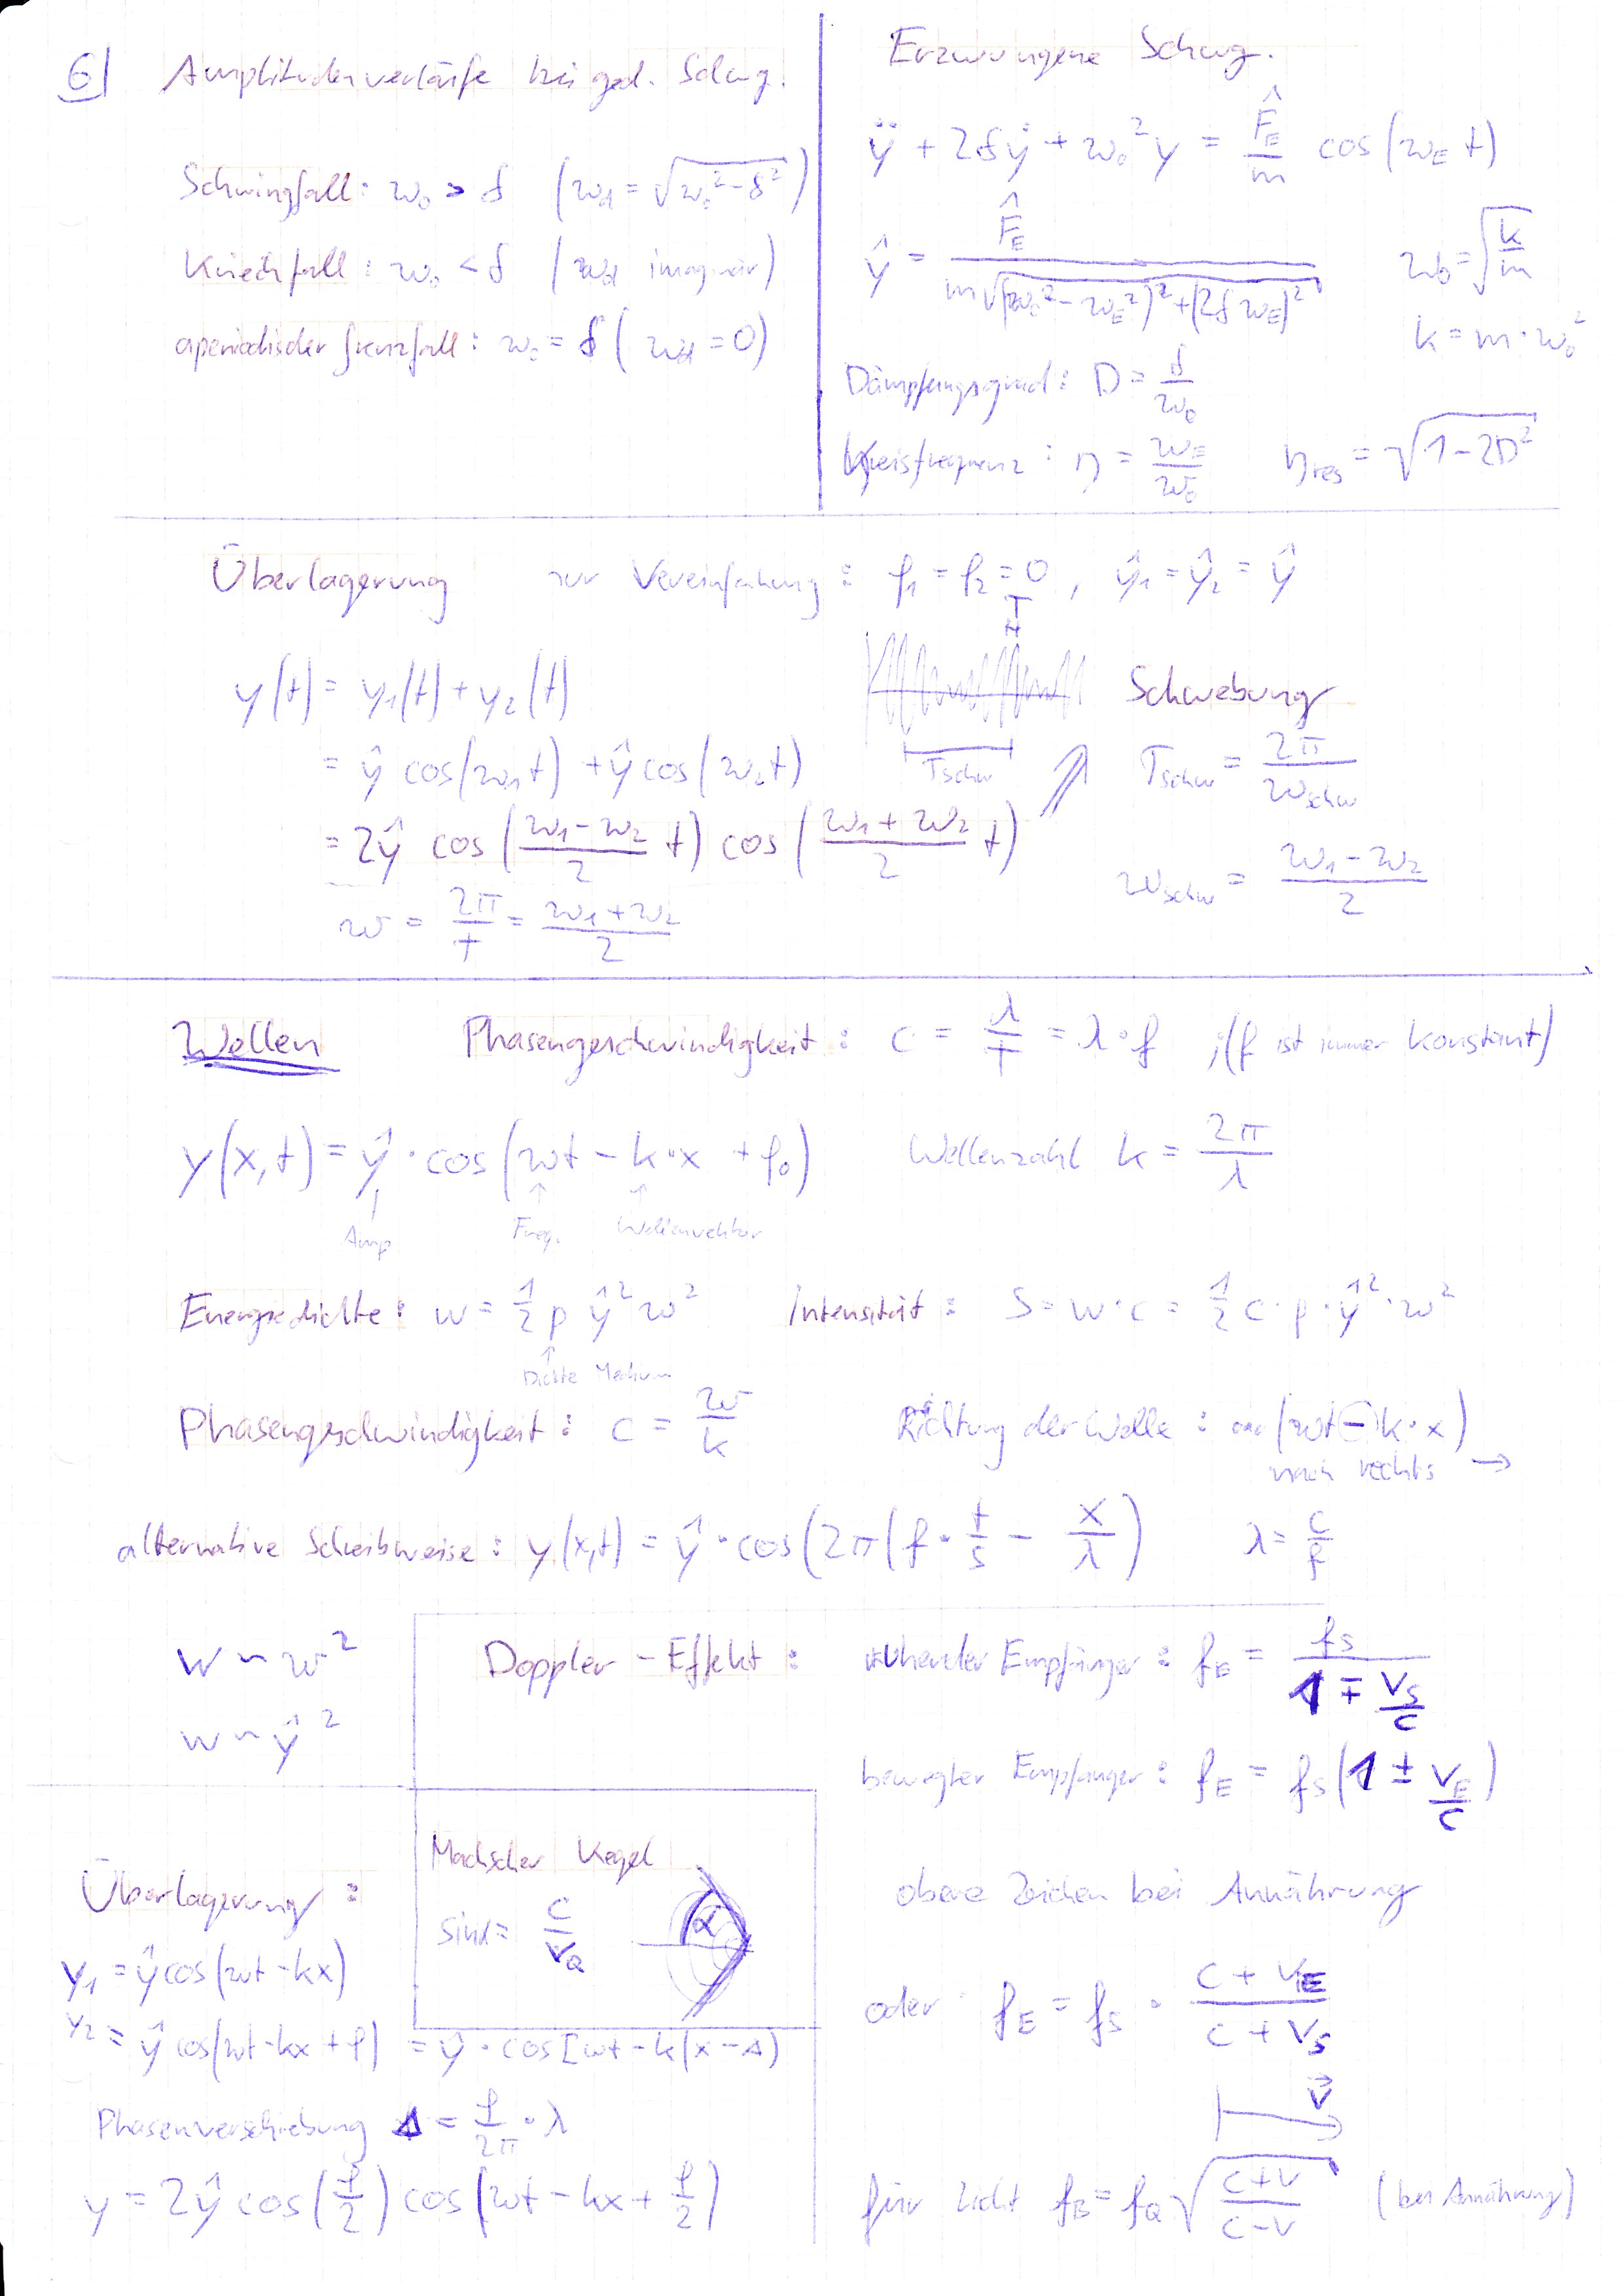 6)
Amplitudenverläufe bei ged. Schwg.
Schwingfall: ω₀ > δ (ω_d = √(ω₀² − δ²))
Kriechfall: ω₀ < δ (ω_d imaginär)
aperiodischer Grenzfall: ω₀ = δ (ω_d = 0)
Erzwungene Schwg.
ÿ + 2δẏ + ω₀²y = F̂_E/m cos(ω_E t)
ŷ = F̂_E / (m√((ω₀² − ω_E²)² + (2δω_E)²))
ω₀ = √(k/m)
k = m · ω₀²
Dämpfungsgrad: D = δ/ω₀
Kreisfrequenz: η = ω_E/ω₀ η_res = √(1 − 2D²)
Überlagerung zur Vereinfachung: φ₁ = φ₂ = 0, ŷ₁ = ŷ₂ = ŷ
T
y(t) = y₁(t) + y₂(t)
= ŷ cos(ω₁t) + ŷ cos(ω₂t)
= 2ŷ cos((ω₁ − ω₂)/2 t) cos((ω₁ + ω₂)/2 t)
ω = 2π/T = (ω₁ + ω₂)/2
T_schw
Schwebung
T_schw = 2π/ω_schw
ω_schw = (ω₁ − ω₂)/2
Wellen Phasengeschwindigkeit: c = λ/T = λ · f ; (f ist immer konstant)
y(x,t) = ŷ · cos(ωt − k · x + φ₀) Wellenzahl k = 2π/λ
Amp Freq. Wellenvektor
Energiedichte: w = 1/2 ρ ŷ² ω² Intensität: S = w · c = 1/2 c · ρ · ŷ² · ω²
Dichte Medium
Phasengeschwindigkeit: c = ω/k Richtung der Welle: ...(ωt − k · x)
nach rechts →
alternative Scheibweise: y(x,t) = ŷ · cos(2π(f · t/s − x/λ) λ = c/f
w ~ ω²
w ~ ŷ²
Doppler-Effekt: ruhender Empfänger: f_E = f_S / (1 ∓ v_S/c)
bewegter Empfänger: f_E = f_S(1 ± v_E/c)
obere Zeichen bei Annährung
oder f_E = f_S · (c + v_E)/(c + v_S)
v⃗
für Licht f_B = f_Q √((c+v)/(c−v)) (bei Annährung)
Machscher Kegel
sin α = c/v_Q
α
Überlagerung:
y₁ = ŷ cos(ωt − kx)
y₂ = ŷ cos(ωt − kx + φ) = ŷ · cos[ωt − k(x − Δ)
Phasenverschiebung Δ = φ/2π · λ
y = 2ŷ cos(φ/2) cos(ωt − kx + φ/2)